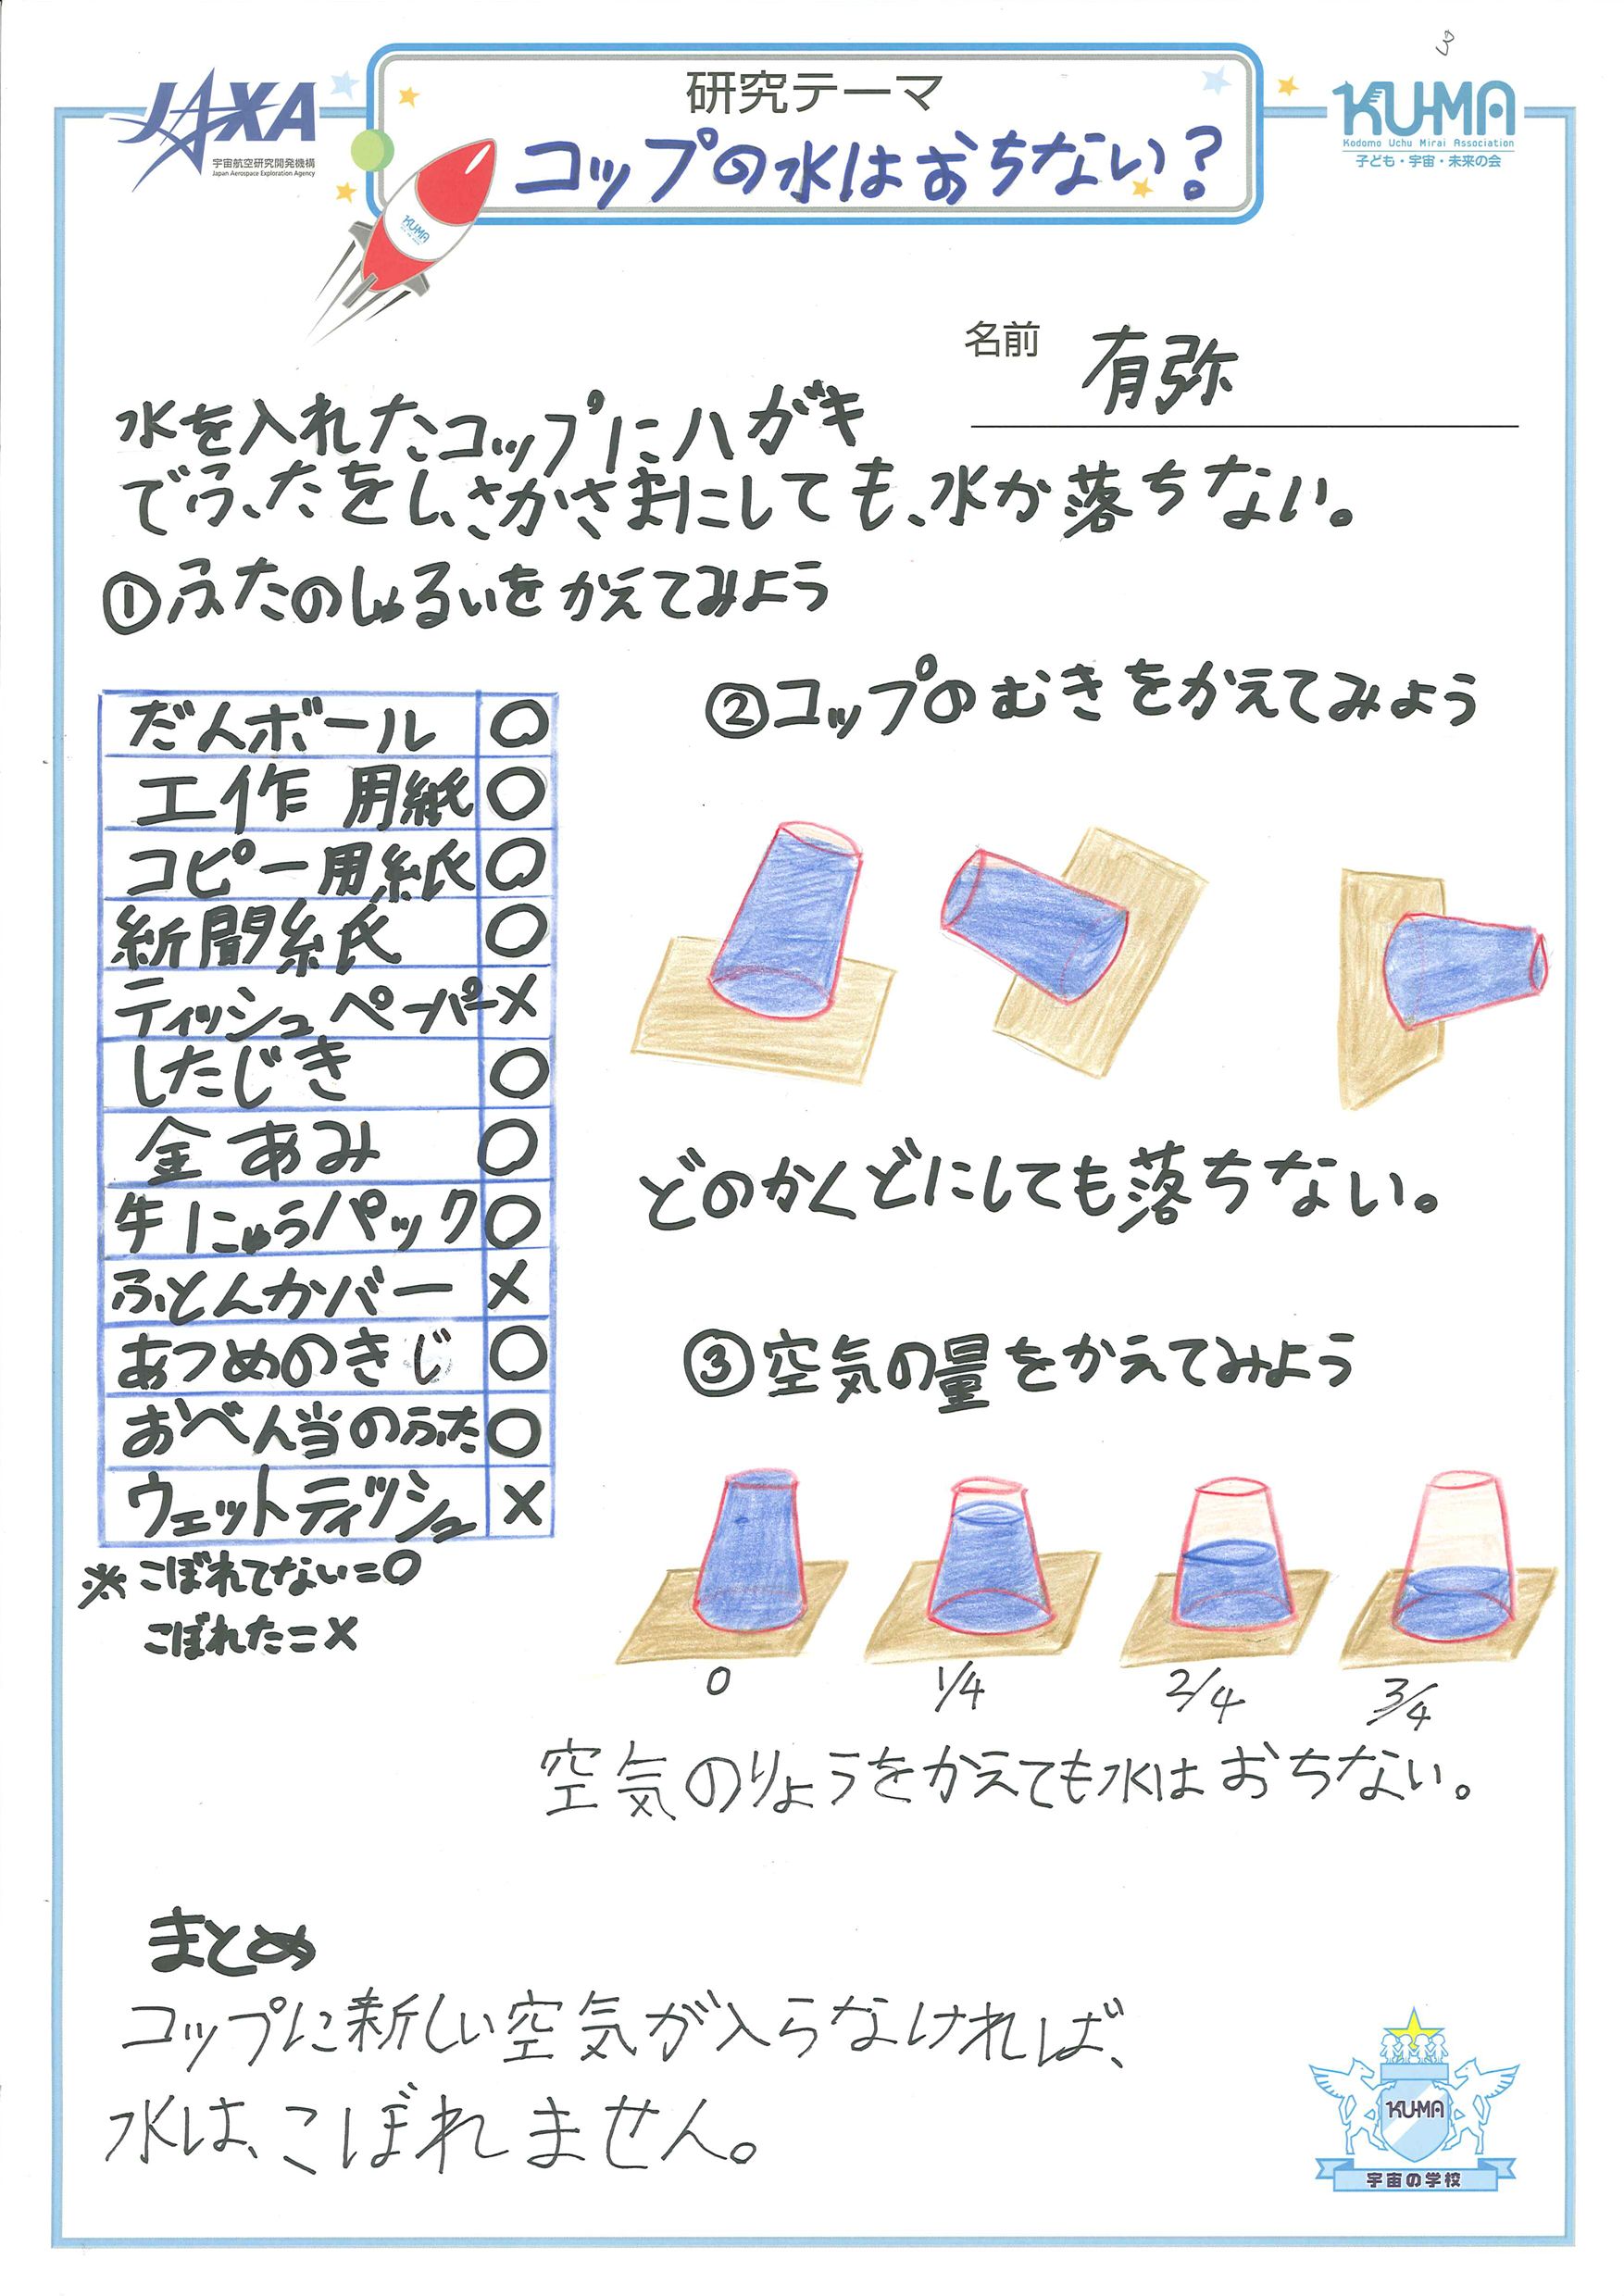 3
研究テーマ
コップの水はおちない?
JAXA
宇宙航空研究開発機構
Japan Aerospace Exploration Agency
KU-MA
Kodomo Uchu Mirai Association
子ども・宇宙・未来の会
KU-MA
名前 有弥
水を入れたコップにハガキ
でふたをし、さかさまにしても、水が落ちない。
①ふたのしゅるいをかえてみよう
だんボール ○
工作用紙 ○
コピー用紙 ○
新聞紙 ○
ティッシュペーパー ×
したじき ○
金あみ ○
牛にゅうパック ○
ふとんカバー ×
あつめのきじ ○
おべん当のふた ○
ウェットティッシュ ×
※こぼれてない=○
こぼれた=×
②コップのむきをかえてみよう
どのかくどにしても落ちない。
③空気の量をかえてみよう
0 1/4 2/4 3/4
空気のりょうをかえても水はおちない。
まとめ
コップに新しい空気が入らなければ、
水は、こぼれません。
KU-MA
宇宙の学校